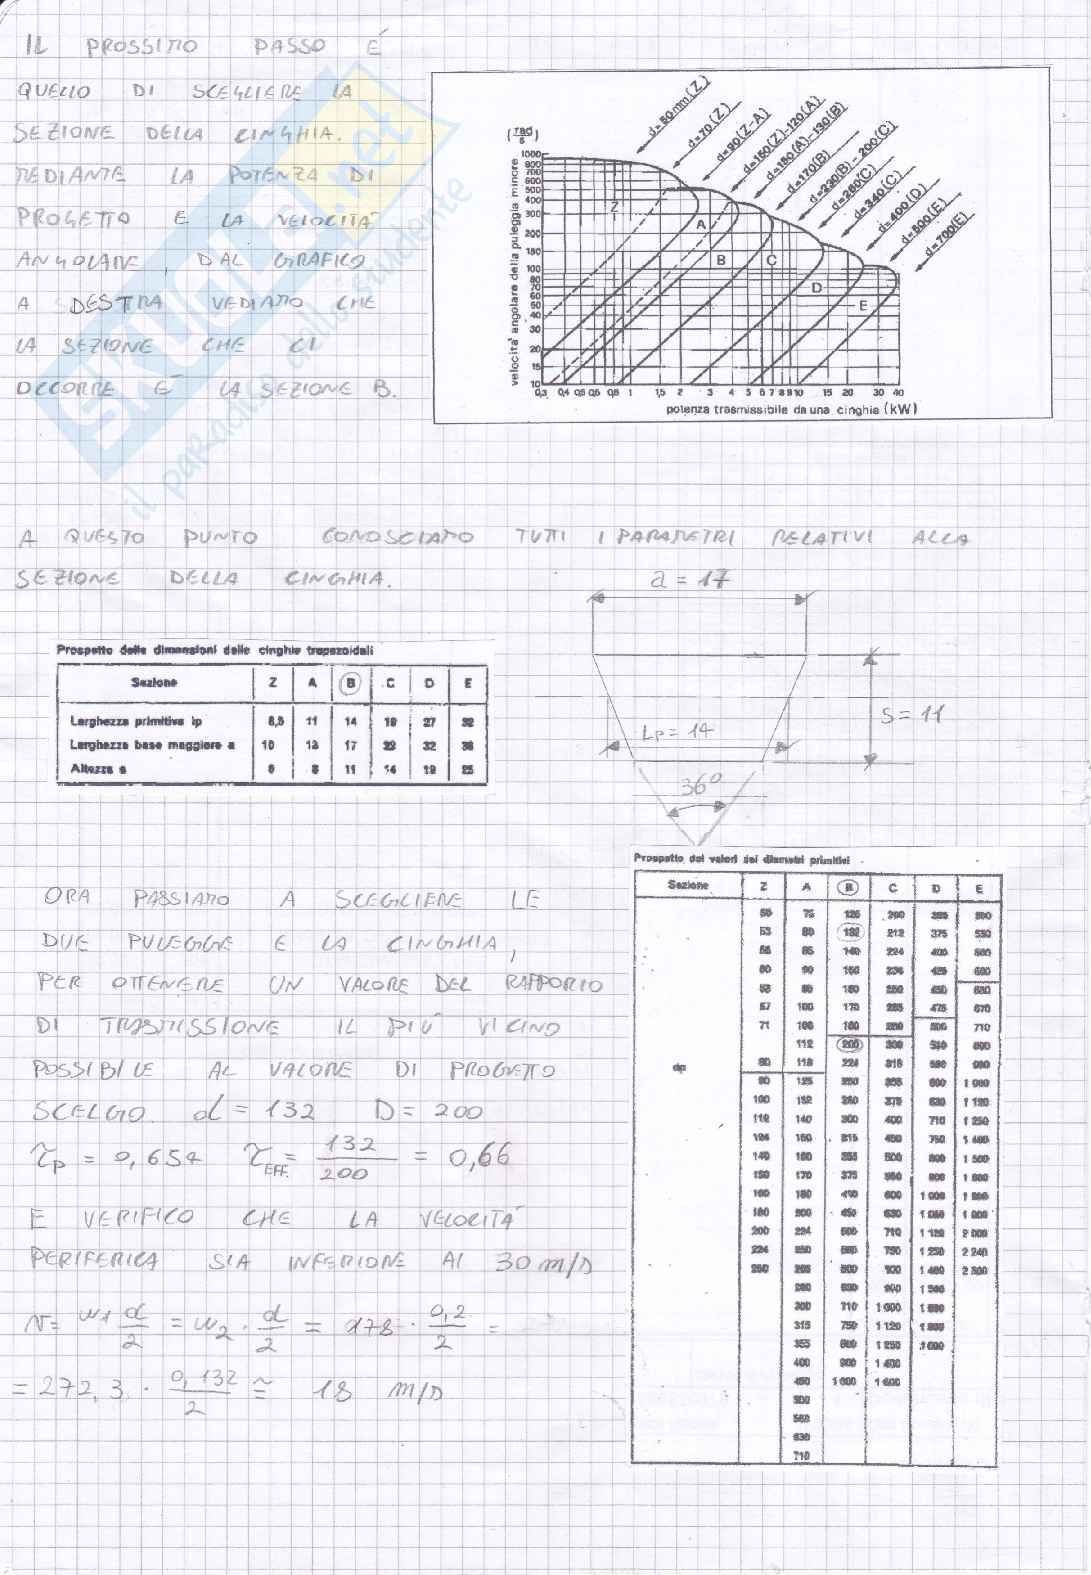 IL PROSSIMO PASSO É
QUELLO DI SCEGLIERE LA
SEZIONE DELLA CINGHIA.
MEDIANTE LA POTENZA DI
PROGETTO E LA VELOCITÀ
ANGOLARE, DAL GRAFICO
A DESTRA VEDIAMO CHE
LA SEZIONE CHE CI
OCCORRE É LA SEZIONE B.
SKUOLA.net
il paradiso dello studente
d=50mm(Z)
d=70(Z)
d=90(Z-A)
d=150(Z)-120(A)
d=180(A)-130(B)
d=170(B)
d=230(B)-200(C)
d=260(C)
d=340(C)
d=400(D)
d=500(E)
d=700(E)
(rad/s)
velocita' angolare della puleggia minore
1000
800
700
600
500
400
300
200
150
100
80
70
60
50
40
30
20
15
10
Z A B C D E
0,3 0,4 0,5 0,6 0,8 1 1,5 2 3 4 5 6 7 8 9 10 15 20 30 40
potenza trasmissibile da una cinghia (kW)
A QUESTO PUNTO CONOSCIAMO TUTTI I PARAMETRI RELATIVI ALLA
SEZIONE DELLA CINGHIA.
a = 17
S = 11
Lp = 14
36°
Prospetto delle dimensioni delle cinghie trapezoidali
Sezione Z A B C D E
Larghezza primitiva lp 8,5 11 14 19 27 32
Larghezza base maggiore a 10 13 17 22 32 38
Altezza s 6 8 11 14 19 25
ORA PASSIAMO A SCEGLIERE LE
DUE PULEGGE E LA CINGHIA,
PER OTTENERE UN VALORE DEL RAPPORTO
DI TRASMISSIONE IL PIÙ VICINO
POSSIBILE AL VALORE DI PROGETTO
SCELGO d = 132 D = 200
τp = 0,654 τEFF. = 132/200 = 0,66
E VERIFICO CHE LA VELOCITÀ
PERIFERICA SIA INFERIORE AI 30 m/s
v = w1 d/2 = w2 · d/2 = 178 · 0,2/2 =
= 272,3 · 0,132/2 ≅ 18 m/s
Prospetto dei valori dei diametri primitivi
Sezione Z A B C D E
dp
50 75 125 200 355 500
53 80 132 212 375 530
85 140 224 400 560
60 90 150 236 425 600
67 100 170 265 475 670
71 500 710
112 200 300
80 118 224 315 560 900
90 125 250 355 600 1 000
100 132 280 375 630 1 120
112 140 300 400 710 1 250
150 315 450 750 1 400
140 160 355 500 800 1 500
150 170 375 900 1 600
160 180 400 600 1 000 1 800
180 200 450 630
200 224 500 710 1 120 2 000
224 250 750 1 250 2 240
250 265 600 800 1 400 2 500
280 630 900 1 500
300 710 1 000 1 600
315 750 1 120 1 800
355 800 1 250 2 000
400 900 1 400
450 1 000 1 600
500
560
630
710